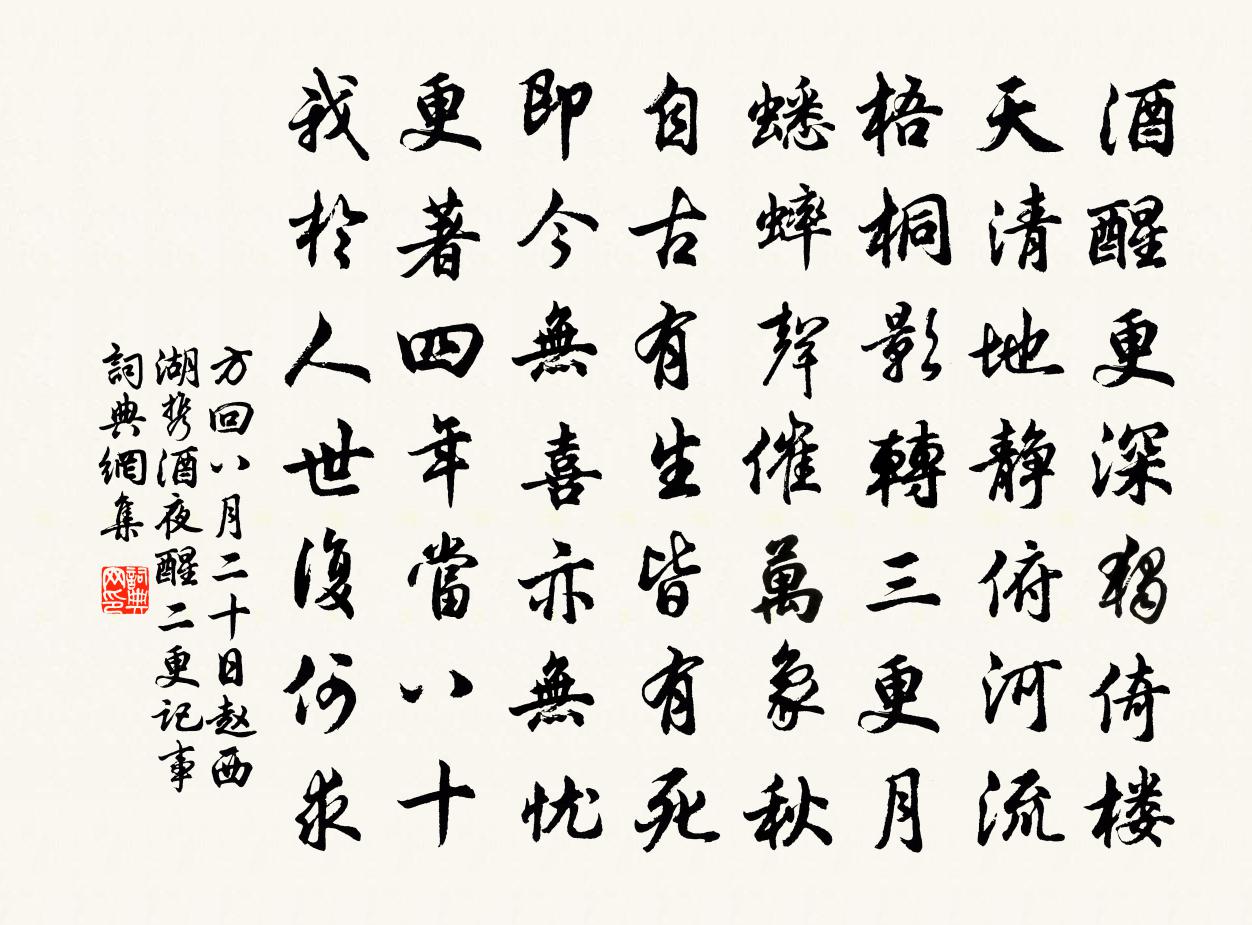 酒醒更深獨倚楼
天清地静俯河流
梧桐影轉三更月
蟋蟀聲催萬象秋
自古有生皆有死
即今無喜亦無忧
更著四年當八十
我於人世復何求
方回八月二十日赵西
湖携酒夜醒二更记事
詞典網集
詞典网印